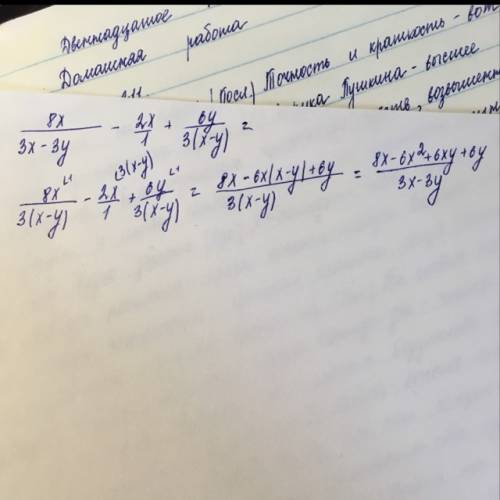 Двеннадцатое
Домашняя работа
(Посл.) Точность и краткость - вот
Пушкина - высшее
возвышен
8x/(3x-3y) - 2x/1 + 6y/(3(x-y)) =
8x/(3(x-y)) - 2x/1 + 6y/(3(x-y)) = (8x-6x(x-y)+6y)/(3(x-y)) = (8x-6x²+6xy+6y)/(3x-3y)